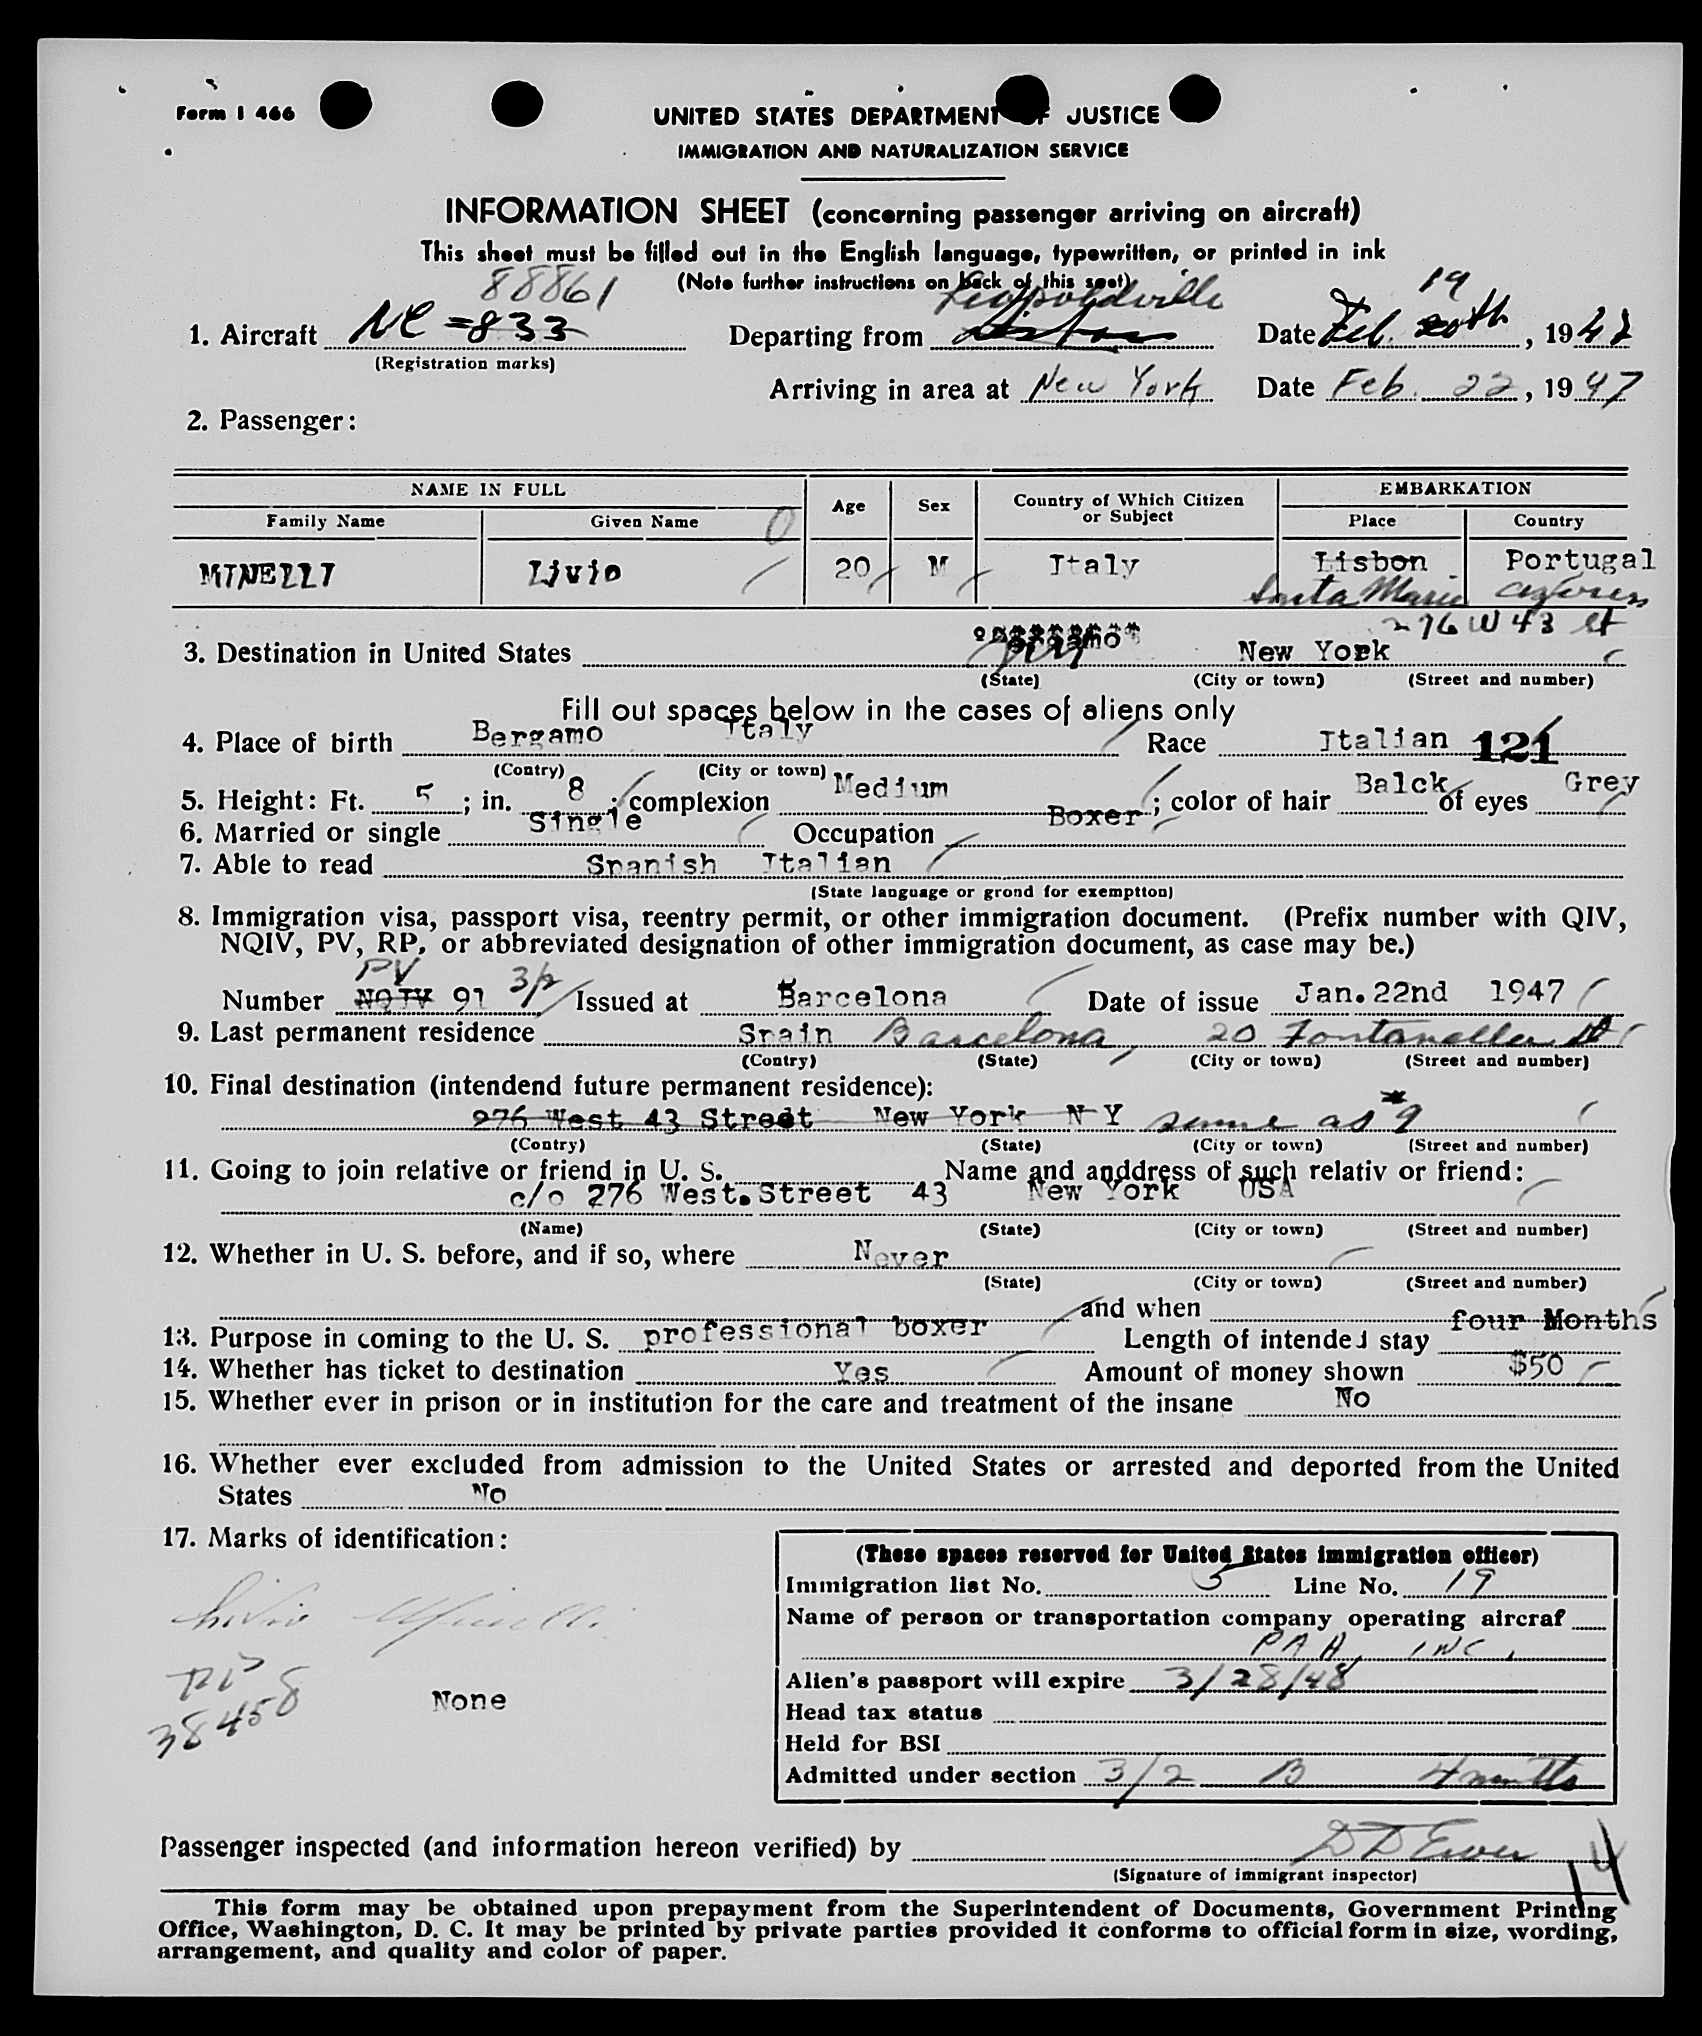 Form I 466
UNITED STATES DEPARTMENT OF JUSTICE
IMMIGRATION AND NATURALIZATION SERVICE
INFORMATION SHEET (concerning passenger arriving on aircraft)
This sheet must be filled out in the English language, typewritten, or printed in ink
(Note further instructions on back of this seet)
88861 Leopoldville 19
1. Aircraft NC =833 Departing from Lisbon Date Feb. 20th, 1947
(Registration marks)
Arriving in area at New York Date Feb. 22, 1947
2. Passenger:
NAME IN FULL Age Sex Country of Which Citizen or Subject EMBARKATION
Family Name Given Name Place Country
MINELLI Livio 20 M Italy Lisbon Portugal
Santa Maria Azores
276 W 43 St
3. Destination in United States NY New York
(State) (City or town) (Street and number)
Fill out spaces below in the cases of aliens only
4. Place of birth Bergamo Italy Race Italian 121
(Contry) (City or town)
5. Height: Ft. 5; in. 8; complexion Medium; color of hair Balck of eyes Grey
6. Married or single Single Occupation Boxer
7. Able to read Spanish Italian
(State language or grond for exemption)
8. Immigration visa, passport visa, reentry permit, or other immigration document. (Prefix number with QIV,
NQIV, PV, RP, or abbreviated designation of other immigration document, as case may be.)
PV 3/2
Number NQIV 91 Issued at Barcelona Date of issue Jan. 22nd 1947
9. Last permanent residence Spain Barcelona, 20 Fontanella St
(Contry) (State) (City or town) (Street and number)
10. Final destination (intendend future permanent residence):
276 West 43 Street New York N Y same as #9
(Contry) (State) (City or town) (Street and number)
11. Going to join relative or friend in U. S. Name and anddress of such relativ or friend:
c/o 276 West. Street 43 New York USA
(Name) (State) (City or town) (Street and number)
12. Whether in U. S. before, and if so, where Never
(State) (City or town) (Street and number)
and when
13. Purpose in coming to the U. S. professional boxer Length of intended stay four Months
14. Whether has ticket to destination Yes Amount of money shown $50
15. Whether ever in prison or in institution for the care and treatment of the insane No
16. Whether ever excluded from admission to the United States or arrested and deported from the United
States No
17. Marks of identification:
Livio Minelli
38458
None
(These spaces reserved for United States immigration officer)
Immigration list No. 5 Line No. 19
Name of person or transportation company operating aircraf
PAA, INC.
Alien's passport will expire 3/28/48
Head tax status
Held for BSI
Admitted under section 3/2 B 4 months
Passenger inspected (and information hereon verified) by
(Signature of immigrant inspector)
14
This form may be obtained upon prepayment from the Superintendent of Documents, Government Printing
Office, Washington, D. C. It may be printed by private parties provided it conforms to official form in size, wording,
arrangement, and quality and color of paper.